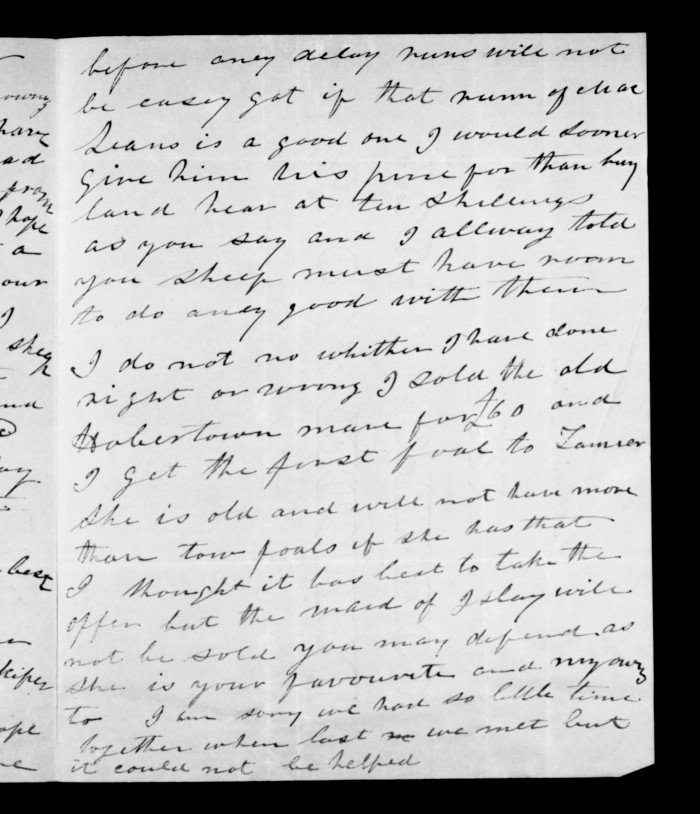 before aney delay runs will not
be easey got if that runn of Mac
Leans is a good one I would sooner
give him his price for than buy
land hear at ten Shillings
as you say and I allway told
you sheep must have room
to do aney good with them
I do not no whither I have done
right or wrong I sold the old
Hobertown mare for £60 and
I get the first foal to
She is old and will not have more
than tow foals if she has that
I thought it bas best to take the
offer but the maid of Islay will
not be sold you may depend as
she is your favourite and my own
to I am sory we had so little time
together when last we met but
it could not be helped
owing
have
ad
from
hope
a
our
I
sheep
and
best